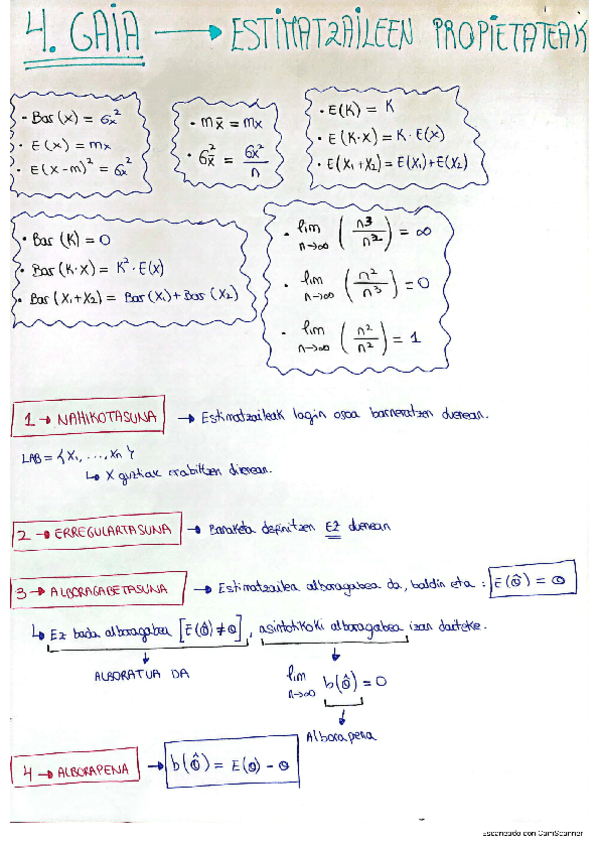 4. GAIA → ESTIMATZAILEEN PROPIETATEAK
· Bar(x) = σx²
· E(x) = mx
· E(x-m)² = σx²
· mx̄ = mx
· σx̄² = σx²/n
· E(K) = K
· E(K·x) = K·E(x)
· E(X₁+X₂) = E(X₁)+E(X₂)
· Bar(K) = 0
· Bar(K·x) = K²·E(x)
· Bar(X₁+X₂) = Bar(X₁)+Bar(X₂)
· lim n→∞ (n³/n²) = ∞
· lim n→∞ (n²/n³) = 0
· lim n→∞ (n²/n²) = 1
1 → NAHIKOTASUNA → Estimatzaileak lagin osoa barneratzen duenean.
LAB = {X₁, ..., Xn}
↳ X guztiak erabiltzen direnean.
2 → ERREGULARTASUNA → Baraketa definitzen EZ duenean
3 → ALBORAGABETASUNA → Estimatzailea alboragabea da, baldin eta: E(θ̂) = θ
↳ Ez bada alboragabea [E(θ̂) ≠ θ], asintotikoki alboragabea izan daiteke.
ALBORATUA DA
lim n→∞ b(θ̂) = 0
Alborapena
4 → ALBORAPENA → b(θ̂) = E(θ) - θ
Escaneado con CamScanner